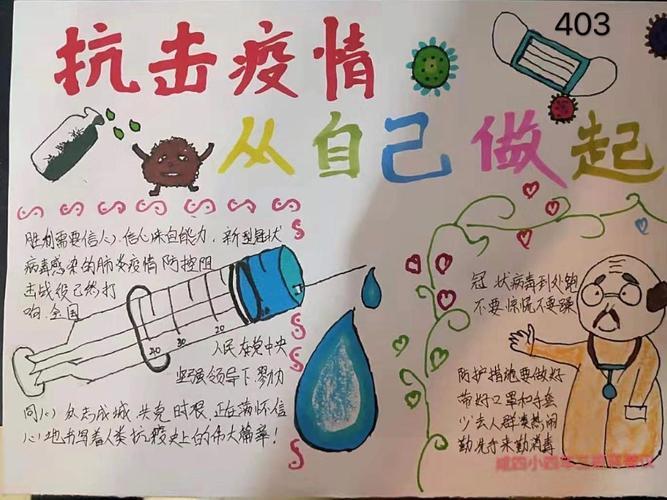 403
抗击疫情
从自己做起
胜利需要信心,信心来自能力,新型冠状
病毒感染的肺炎疫情防控阻
击战役已然打
响.全国
40 30 20
人民在党中央
坚强领导下 勠力
同心 众志成城 共克时艰,正在满怀信
心地书写着人类抗疫史上的伟大篇章!
冠状病毒到处跑
不要惊慌不要躁
防护措施要做好
带好口罩和手套
少去人群凑热闹
勤洗手来勤消毒
咸四小四年三班